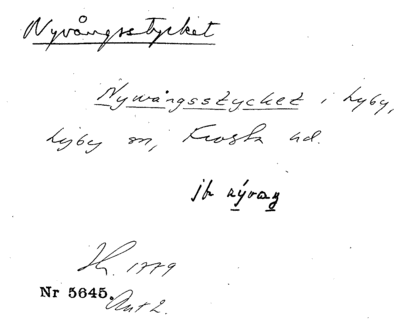 Nyvångsstycket
Nywångsstycket i Lyby,
Lyby sn, Frosta hd.
jfr nývaŋ
Nr 5645.